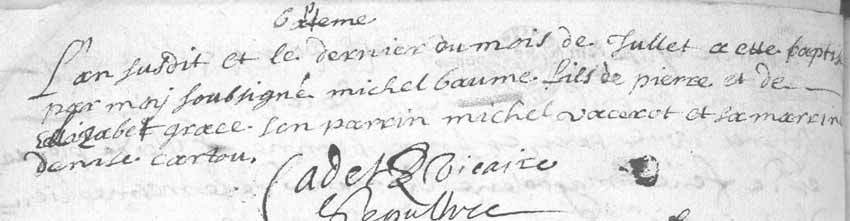 Bpteme
L'an susdit et le dernier du mois de Jullet a ette baptis
par moi soubsigné michel Gaume fils de pierre et de
Elizabet grace son parrin michel vacerot et sa marrine
denise cartou.
Cadet Vicaire
Sepulture